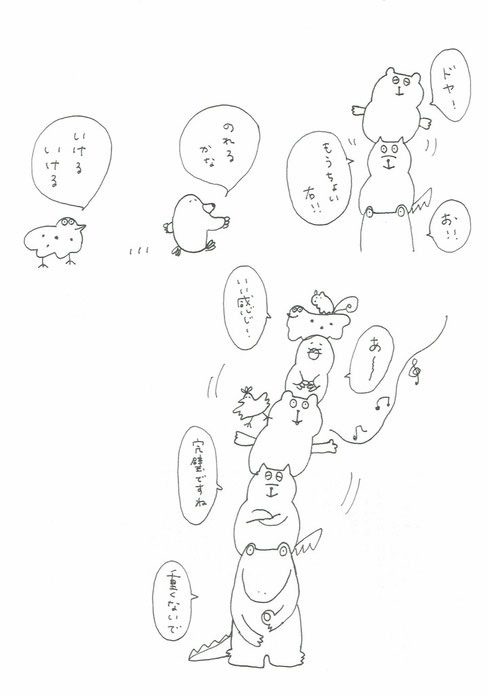 ドヤ！
もうちょい
右！！
お！！
のれる
かな
いける
いける
いい感じ！
あ〜
完璧ですね
重くないで